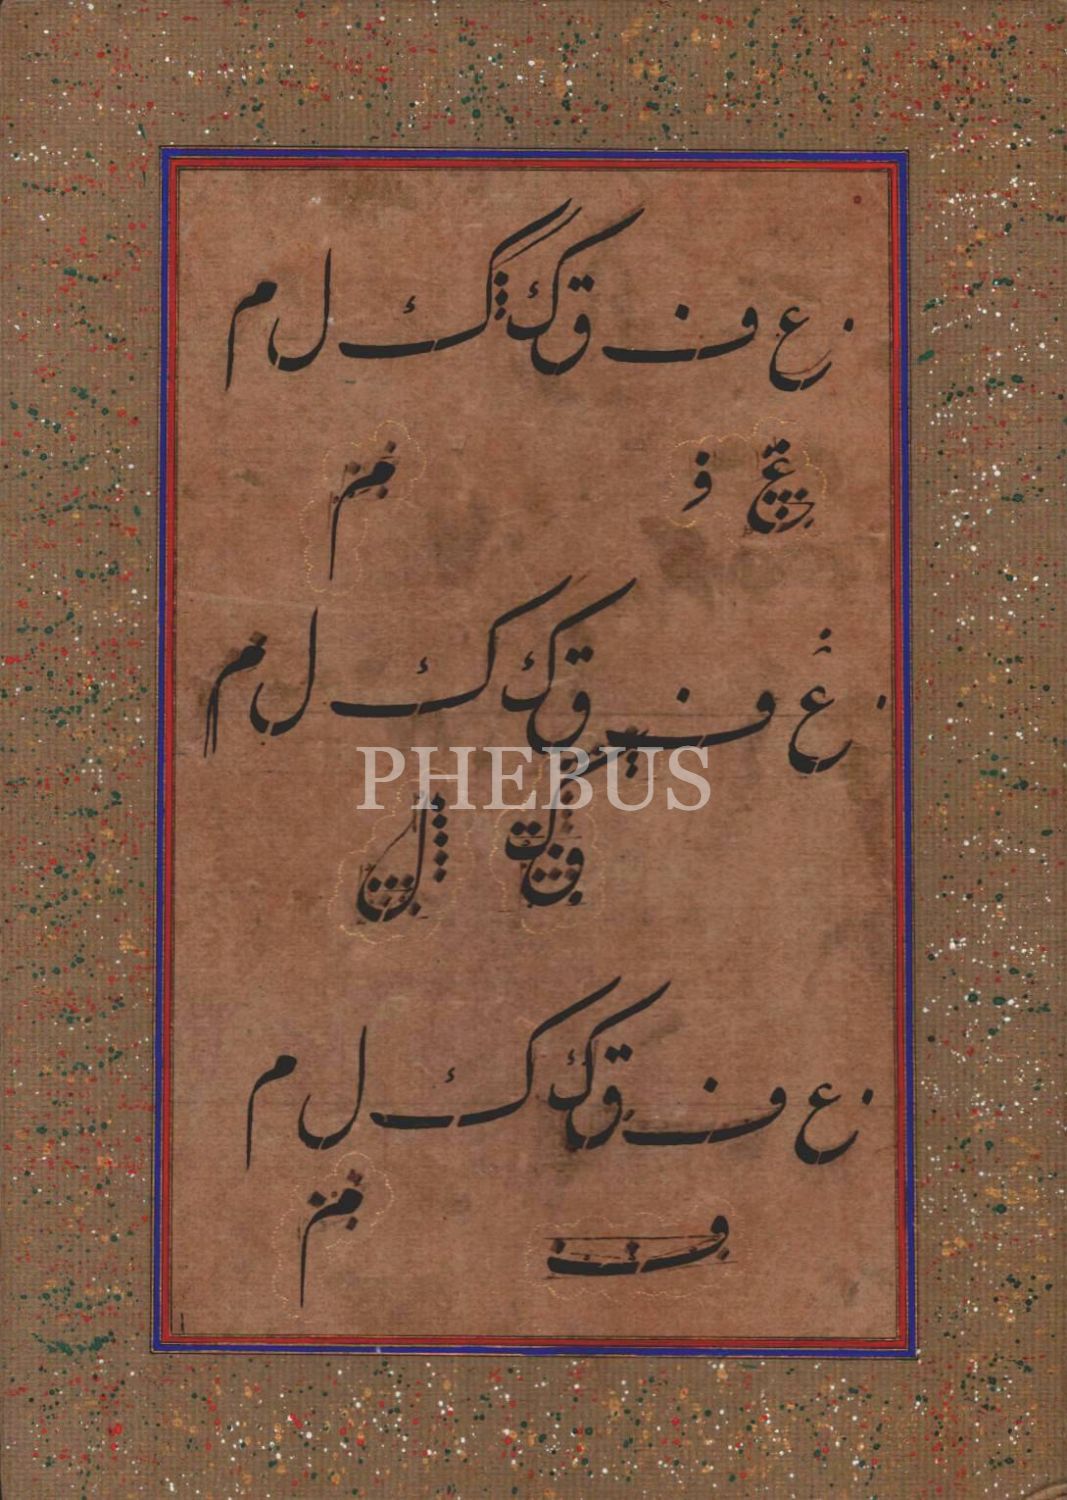 ع ف ق ك ك ل م
ع ف م
ع ف ق ك ك ل م
PHEBUS
ق ك ل
ع ف ق ك ك ل م
ف م